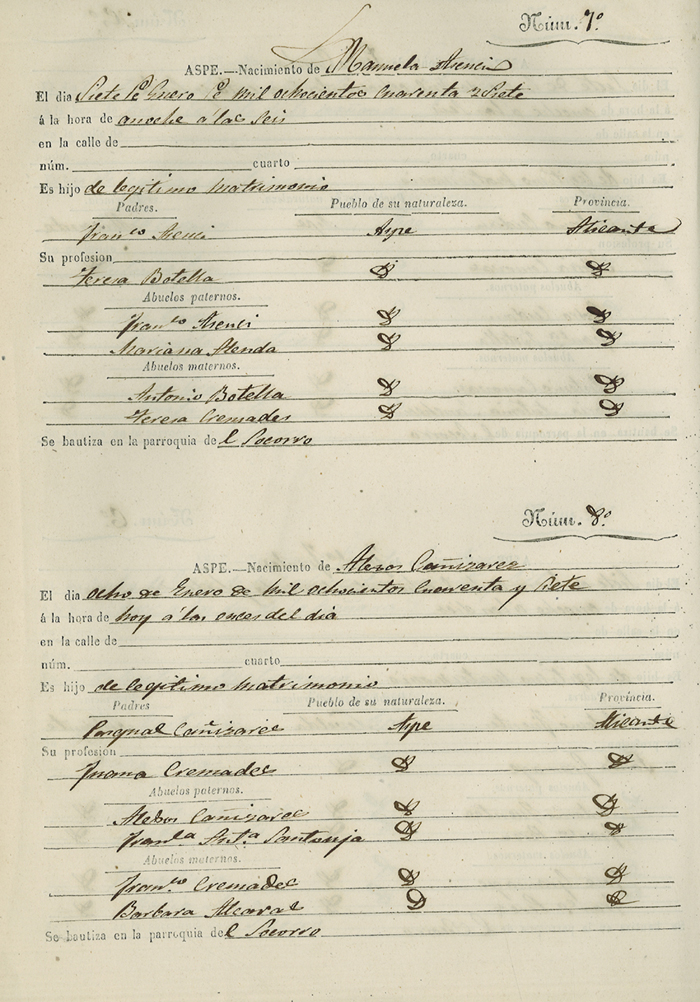 Núm. 7º
ASPE.—Nacimiento de Manuela Asenci
El dia Siete de Enero de mil ochocientos cuarenta y Siete
á la hora de anoche a las Seis
en la calle de
núm. cuarto
Es hijo de legitimo matrimonio
Padres. Pueblo de su naturaleza. Provincia.
Franco Asenci Aspe Alicante
Su profesion
Teresa Botella
Abuelos paternos.
Franco Asenci
Mariana
Abuelos maternos.
Antonio Botella
Teresa Cremades
Se bautiza en la parroquia del Socorro
Núm. 8º
ASPE.—Nacimiento de Cañizarez
El dia ocho de Enero de mil ochocientos Cuarenta y Siete
á la hora de hoy a las onces del dia
en la calle de
núm. cuarto
Es hijo de legitimo matrimonio
Padres Pueblo de su naturaleza. Provincia.
Pasqual Cañizarez Aspe Alicante
Su profesion
Juana Cremades
Abuelos paternos.
Cañizarez
Santonja
Abuelos maternos.
Franco Cremades
Barbara Alcaraz
Se bautiza en la parroquia del Socorro